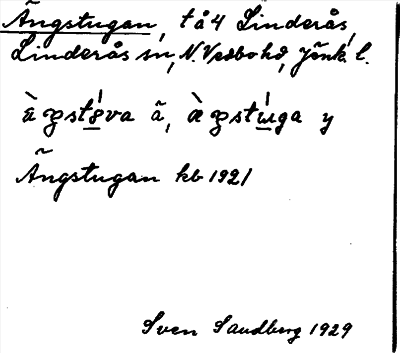 Ängstugan, t å 4 Linderås,
Linderås sn, N. Vedbo hd, Jönk. l.
ä̀ŋstó̱va ã, ä̀ŋstú̱ga y
Ängstugan kb 1921
Sven Sandberg 1929